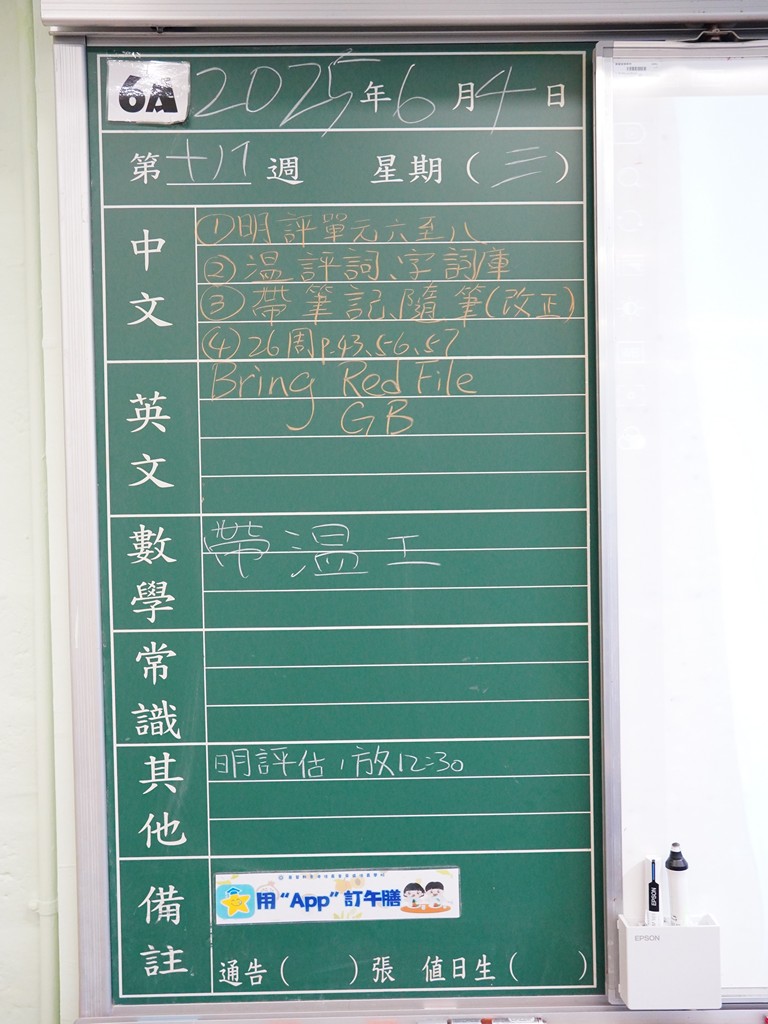 6A 2025年6月4日
第十八週 星期（三）
中文
①明評單元六至八
②溫評詞、字詞庫
③帶筆記、隨筆(改正)
④26周p.43、56、57
英文
Bring Red File
GB
數學
帶溫工
常識
其他
明評估，放12:30
備註
用“App”訂午膳
通告（ ）張 值日生（ ）
EPSON
EPSON